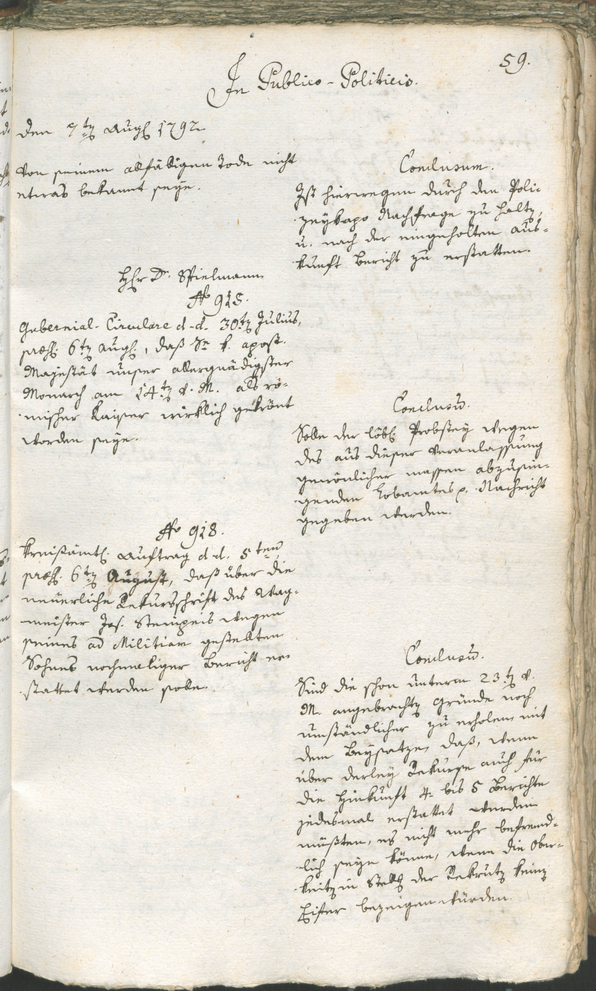 59.
In Publico-Politicis.
Den 7ten Augl 1792
von seinem allfäligen Tode nicht
etwas bekannt seye.
Conclusum.
Ist hierwegen durch den Poli-
zeykapo Nachfrage zu halten,
u. nach der eingeholten Aus-
kunft Bericht zu erstatten.
Hhr Dr. Spielmann
No 915.
Gubernial-Circulare d.d. 30ten Julius,
praes. 6ten Augl, daß Sr k. apost.
Majestät unser allergnädigster
Monarch am 14ten v. M. als rö-
mischer Kaiser wirklich gekrönt
worden seye.
Conclusu.
Solle der löbl Probstey wegen
des aus dieser Veranlassung
gewönlicher massen abzusin-
genden Hohamtes p. Nachricht
gegeben werden.
No 918.
Kreisämtl. Auftrag d.d. 5ten
praes. 6ten August, daß über die
neuerliche Rekursschrift des
meister Jos. Stempeis wegen
seines ad Militiam gestellten
Sohnes nochmaliger Bericht er-
stattet werden solle.
Conclusu.
Sind die schon unterm 23ten v.
M. angebrachten Gründe noch
umständlicher zu erholen mit
dem Beysatze, daß, wenn
über derley Rekurse auch für
die Hinkunft 4 bis 5 Berichte
jedesmal erstattet werden
müßten, es nicht mehr befremd-
lich seye könne, wenn die Ober-
keiten in der Rekruten keinen
Eifer bezeigen würden.